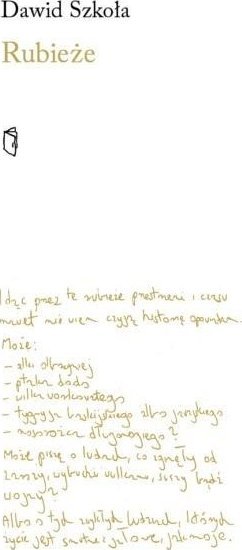 Dawid Szkoła
Rubieże
Idąc przez te rubieże przestrzeni i czasu
nawet nie wiem czyją historię opowiadam.
Może:
- alki olbrzymiej
- ptaka dodo
- wilka workowatego
- tygrysa balijskiego albo jawajskiego
- nosorożca
Może piszę o ludziach, co zginęły od
zarazy, wybuchu wulkanu, suszy bądź
wojny?
Albo o tych zwykłych ludziach, których
życie jest smutne i jałowe, jak moje.